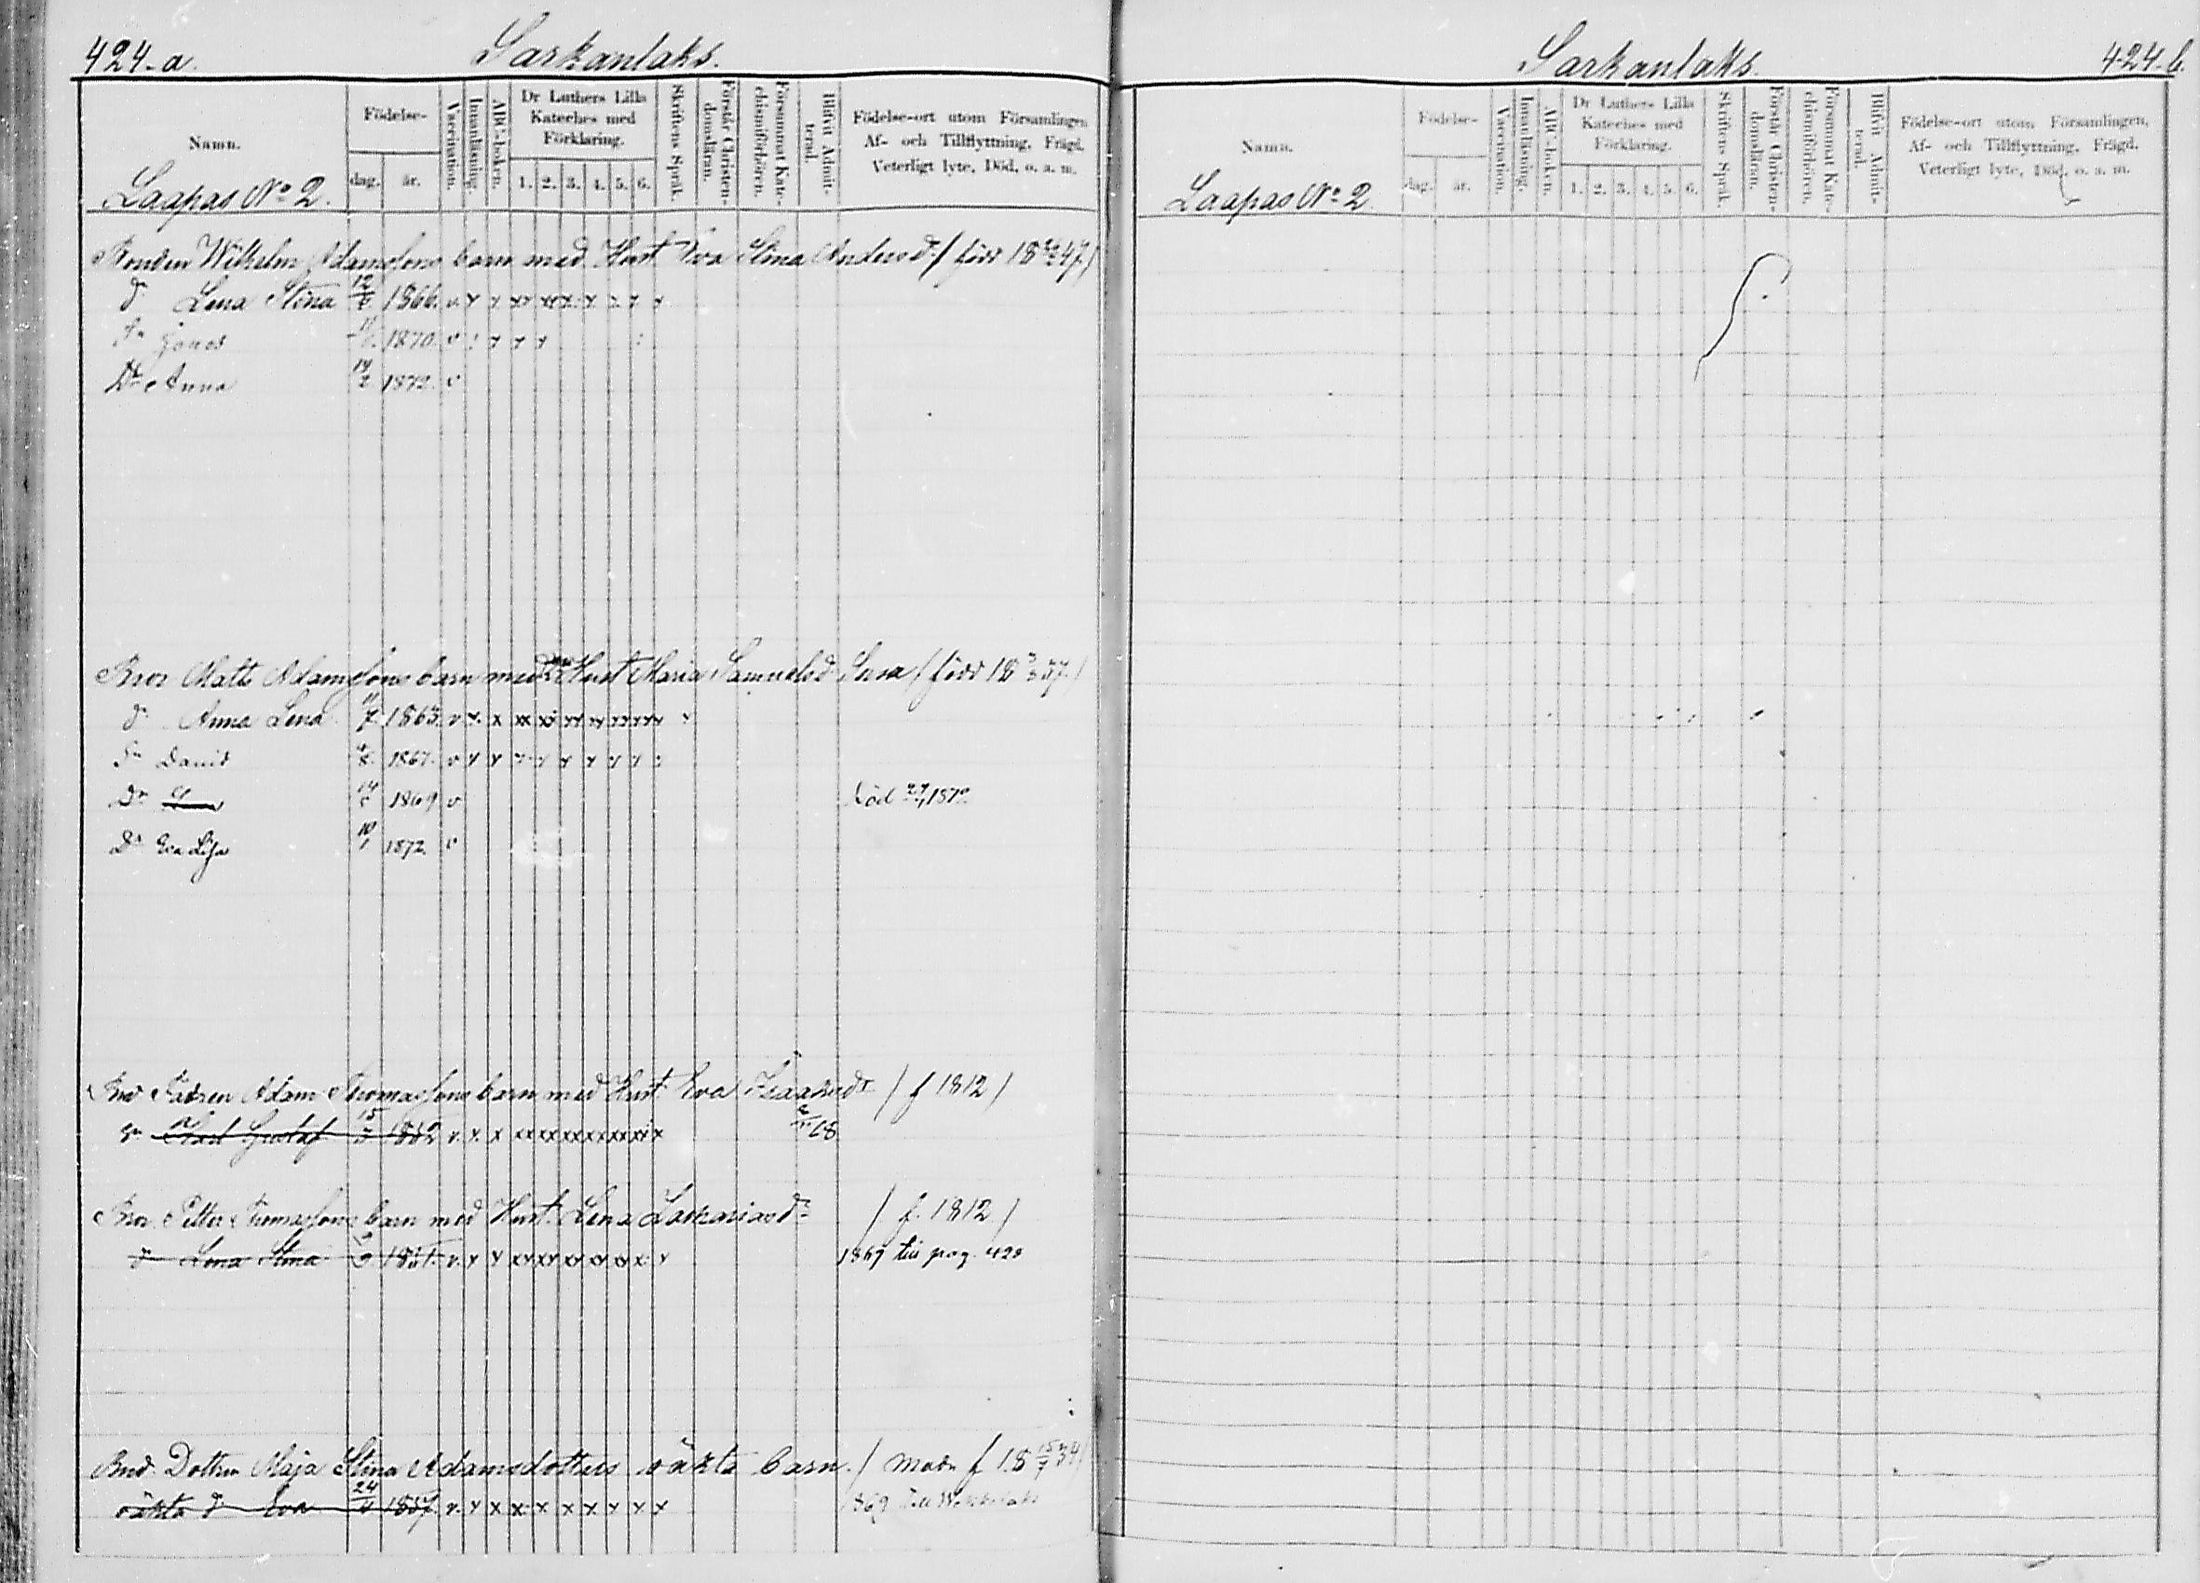 424-a.
Sarkanlaks.
Namn.
Födelse-
dag.
år.
Vaccination.
Innanläsning.
ABC-boken.
Dr Luthers Lilla
Kateches med
Förklaring.
1. 2. 3. 4. 5. 6.
Skriftens Språk.
Förstår Christen-
domsläran.
Försummat Kate-
chismiförhören.
Blifvit Admit-
terad.
Födelse-ort utom Församlingen,
Af- och Tillflyttning, Frägd,
Veterligt lyte, Död, o. a. m.
Laapas No 2.
Bonden Wilhelm Adamssons barn med Hust. Eva Stina Andersd. / född 18 47 /
dr Lena Stina 12 1866. v x x xx xx x x x x x
Sn Jonas 1870. v x x x
Dr Anna 14/2 1872. v
Bror Matts Adamssons barn med Hust Maria Samuelsd. / född 18 37. /
dr Anna Lena 7 1863. v x x xx xx xx xx xx xx
Sn David 8 1867. v x x x x x x x x
Dr 14 1869 v Död 1870
Dr Eva Lisa 10/1 1872. v
Bud Fadren Adam Thomassons barn med Hust. Eva Isaaksdr / f 1812 /
Sn Karl Gustaf 15 1852 v. x. x xx xx xx xx xx xx x 68
Bror Petter Thomassons barn med Hust. Lena Zachariasdr / f. 1812 /
dr Lena Stina 1851. v. x x xx xx xx xx xx x x 1869 till pag. 428
Bnd. Dottren Maja Stina Adamsdotters oäkta barn. / Modr f 18 15/7 34 /
oäkta dr Eva 24/4 1857. v. x x x x x x x x x 1869 till
Sarkanlaks.
424-b.
Namn.
Födelse-
dag.
år.
Vaccination.
Innanläsning.
ABC-boken.
Dr Luthers Lilla
Kateches med
Förklaring.
1. 2. 3. 4. 5. 6.
Skriftens Språk.
Förstår Christen-
domsläran.
Försummat Kate-
chismiförhören.
Blifvit Admit-
terad.
Födelse-ort utom Församlingen,
Af- och Tillflyttning, Frägd,
Veterligt lyte, Död, o. a. m.
Laapas No 2